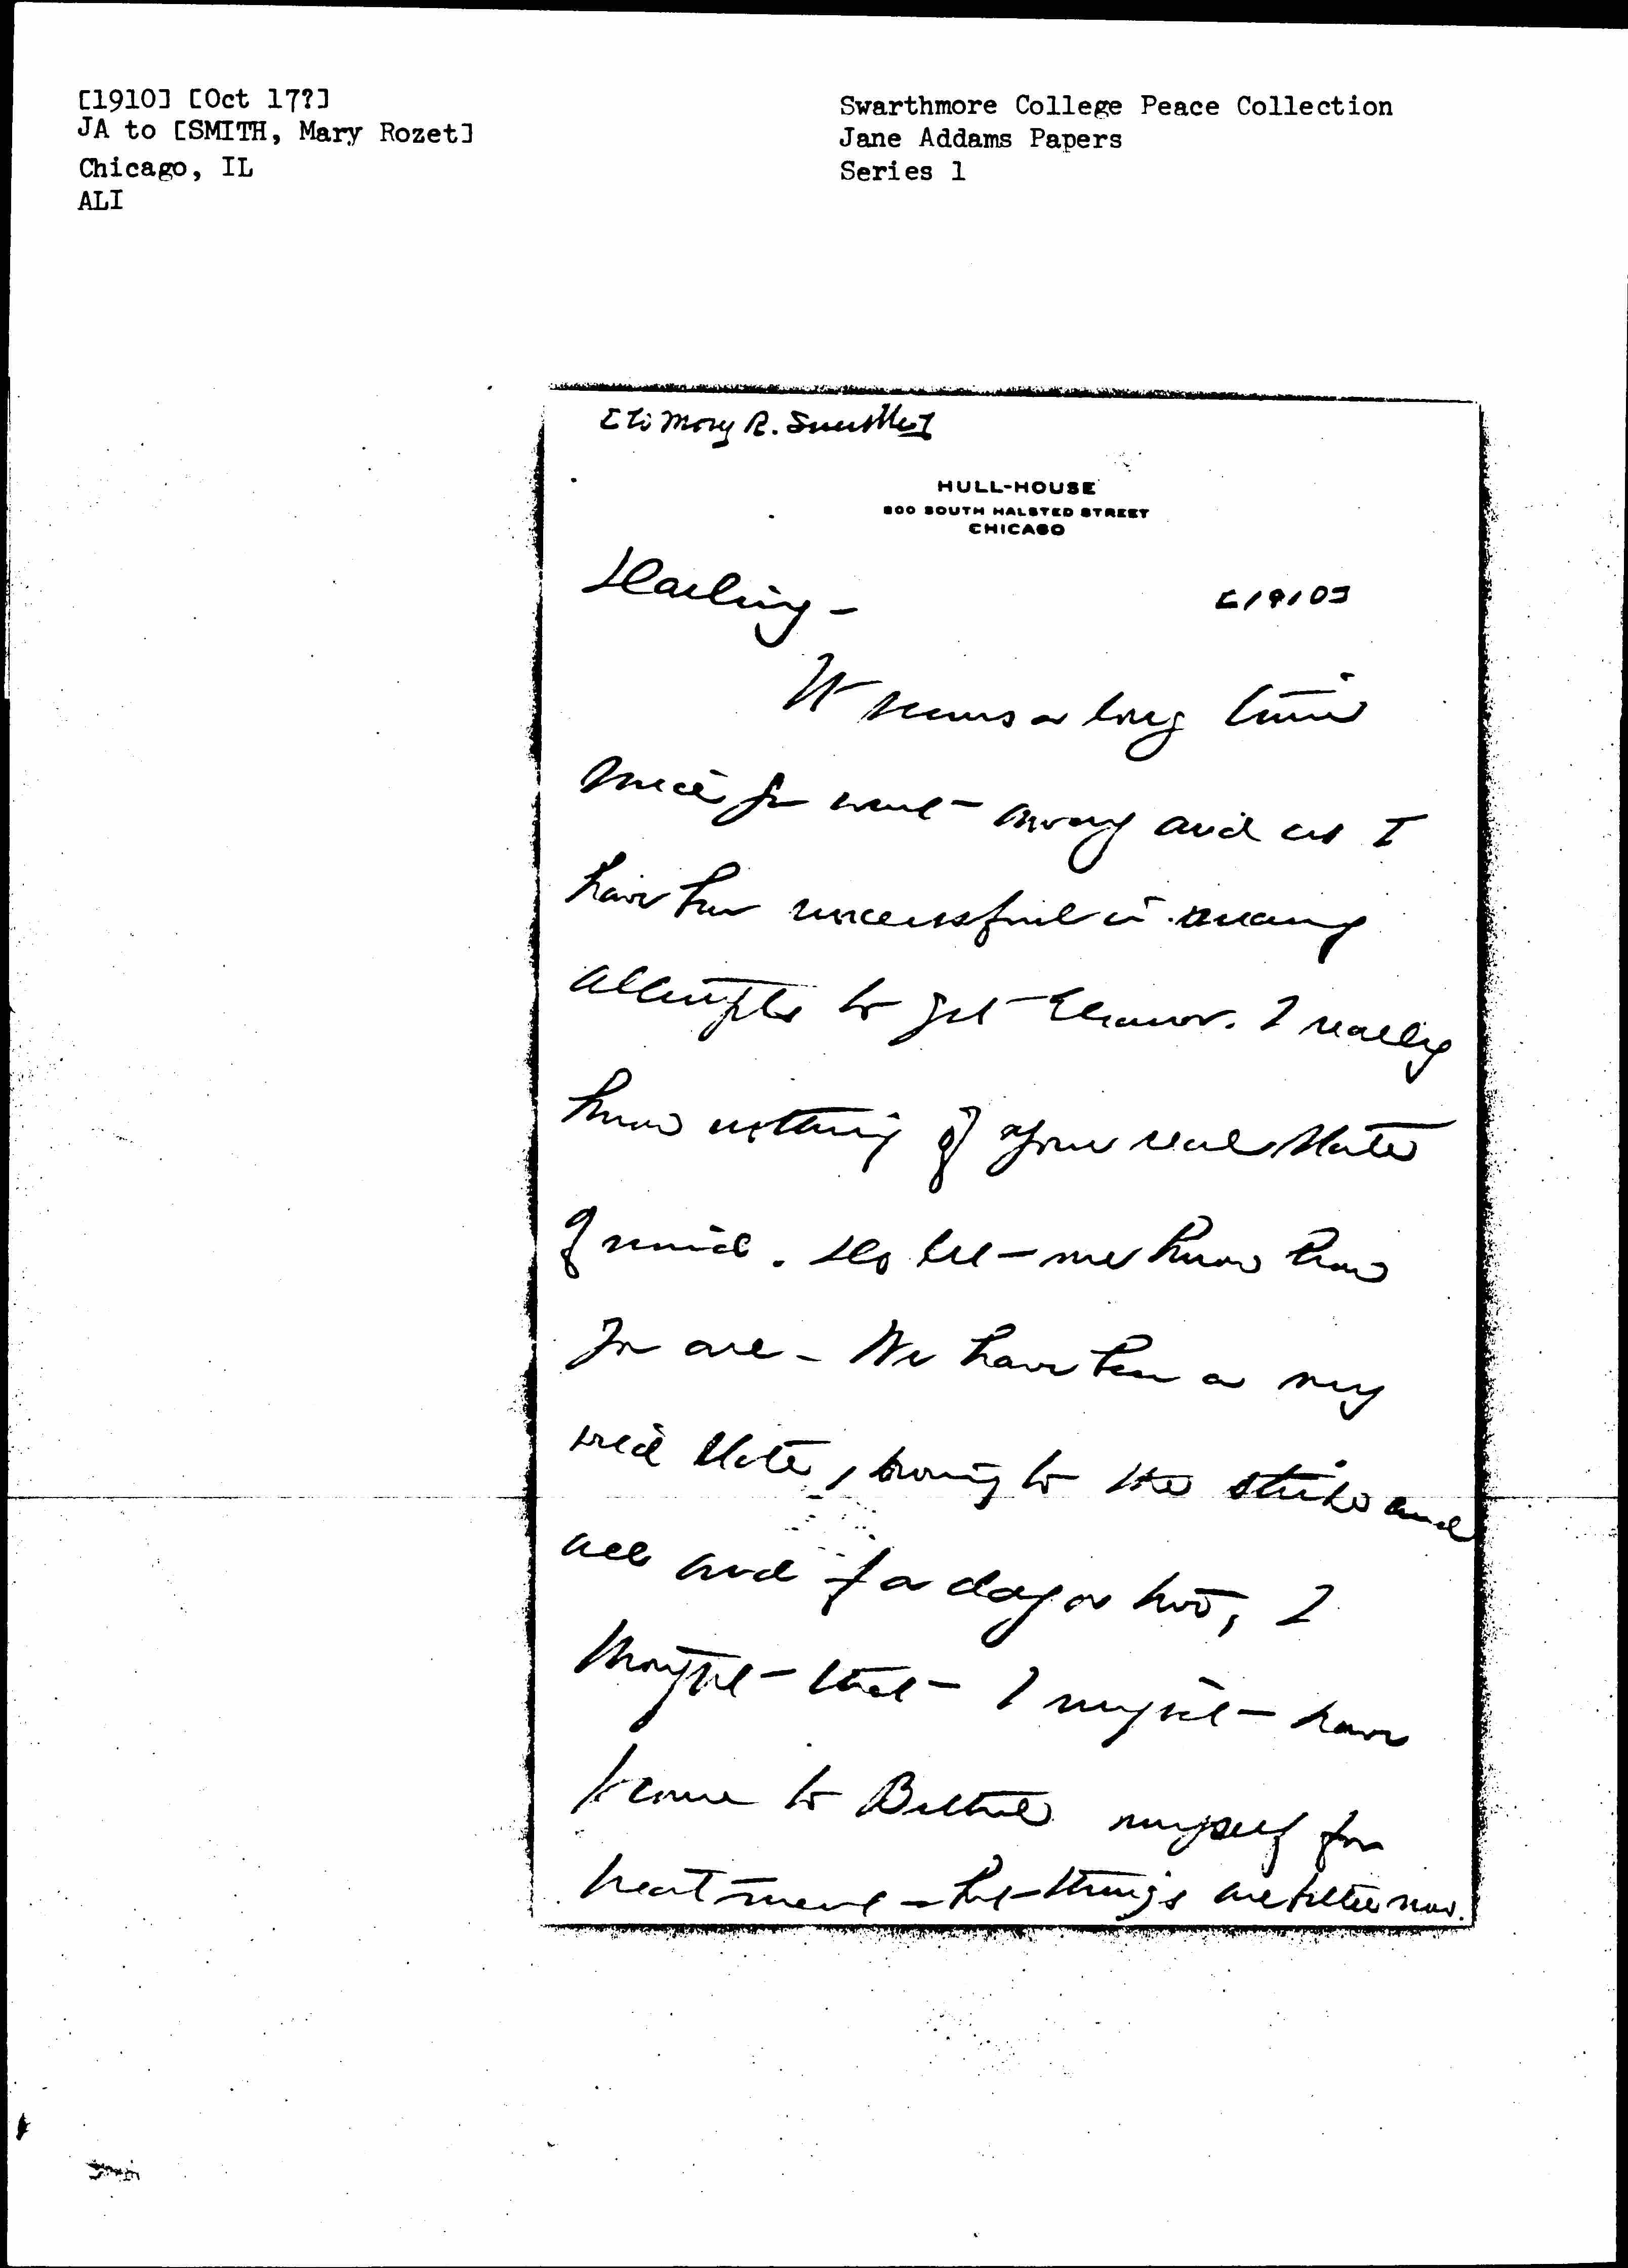 [1910] [Oct 17?]
JA to [SMITH, Mary Rozet]
Chicago, IL
ALI
Swarthmore College Peace Collection
Jane Addams Papers
Series 1
[to Mary R. Smith]
HULL-HOUSE
800 SOUTH HALSTED STREET
CHICAGO
Darling -
[1910]
It seems a long time
since you went away and as I
have been unsuccessful in many
attempts to get Eleanor. I really
know nothing of your real state
of mind. Do let me know how
you are - We have been in a very
wild state, owing to the strike and
all and for a day or two, I
thought that I might have
to come to Bethel myself for
treatment - but things are better now.